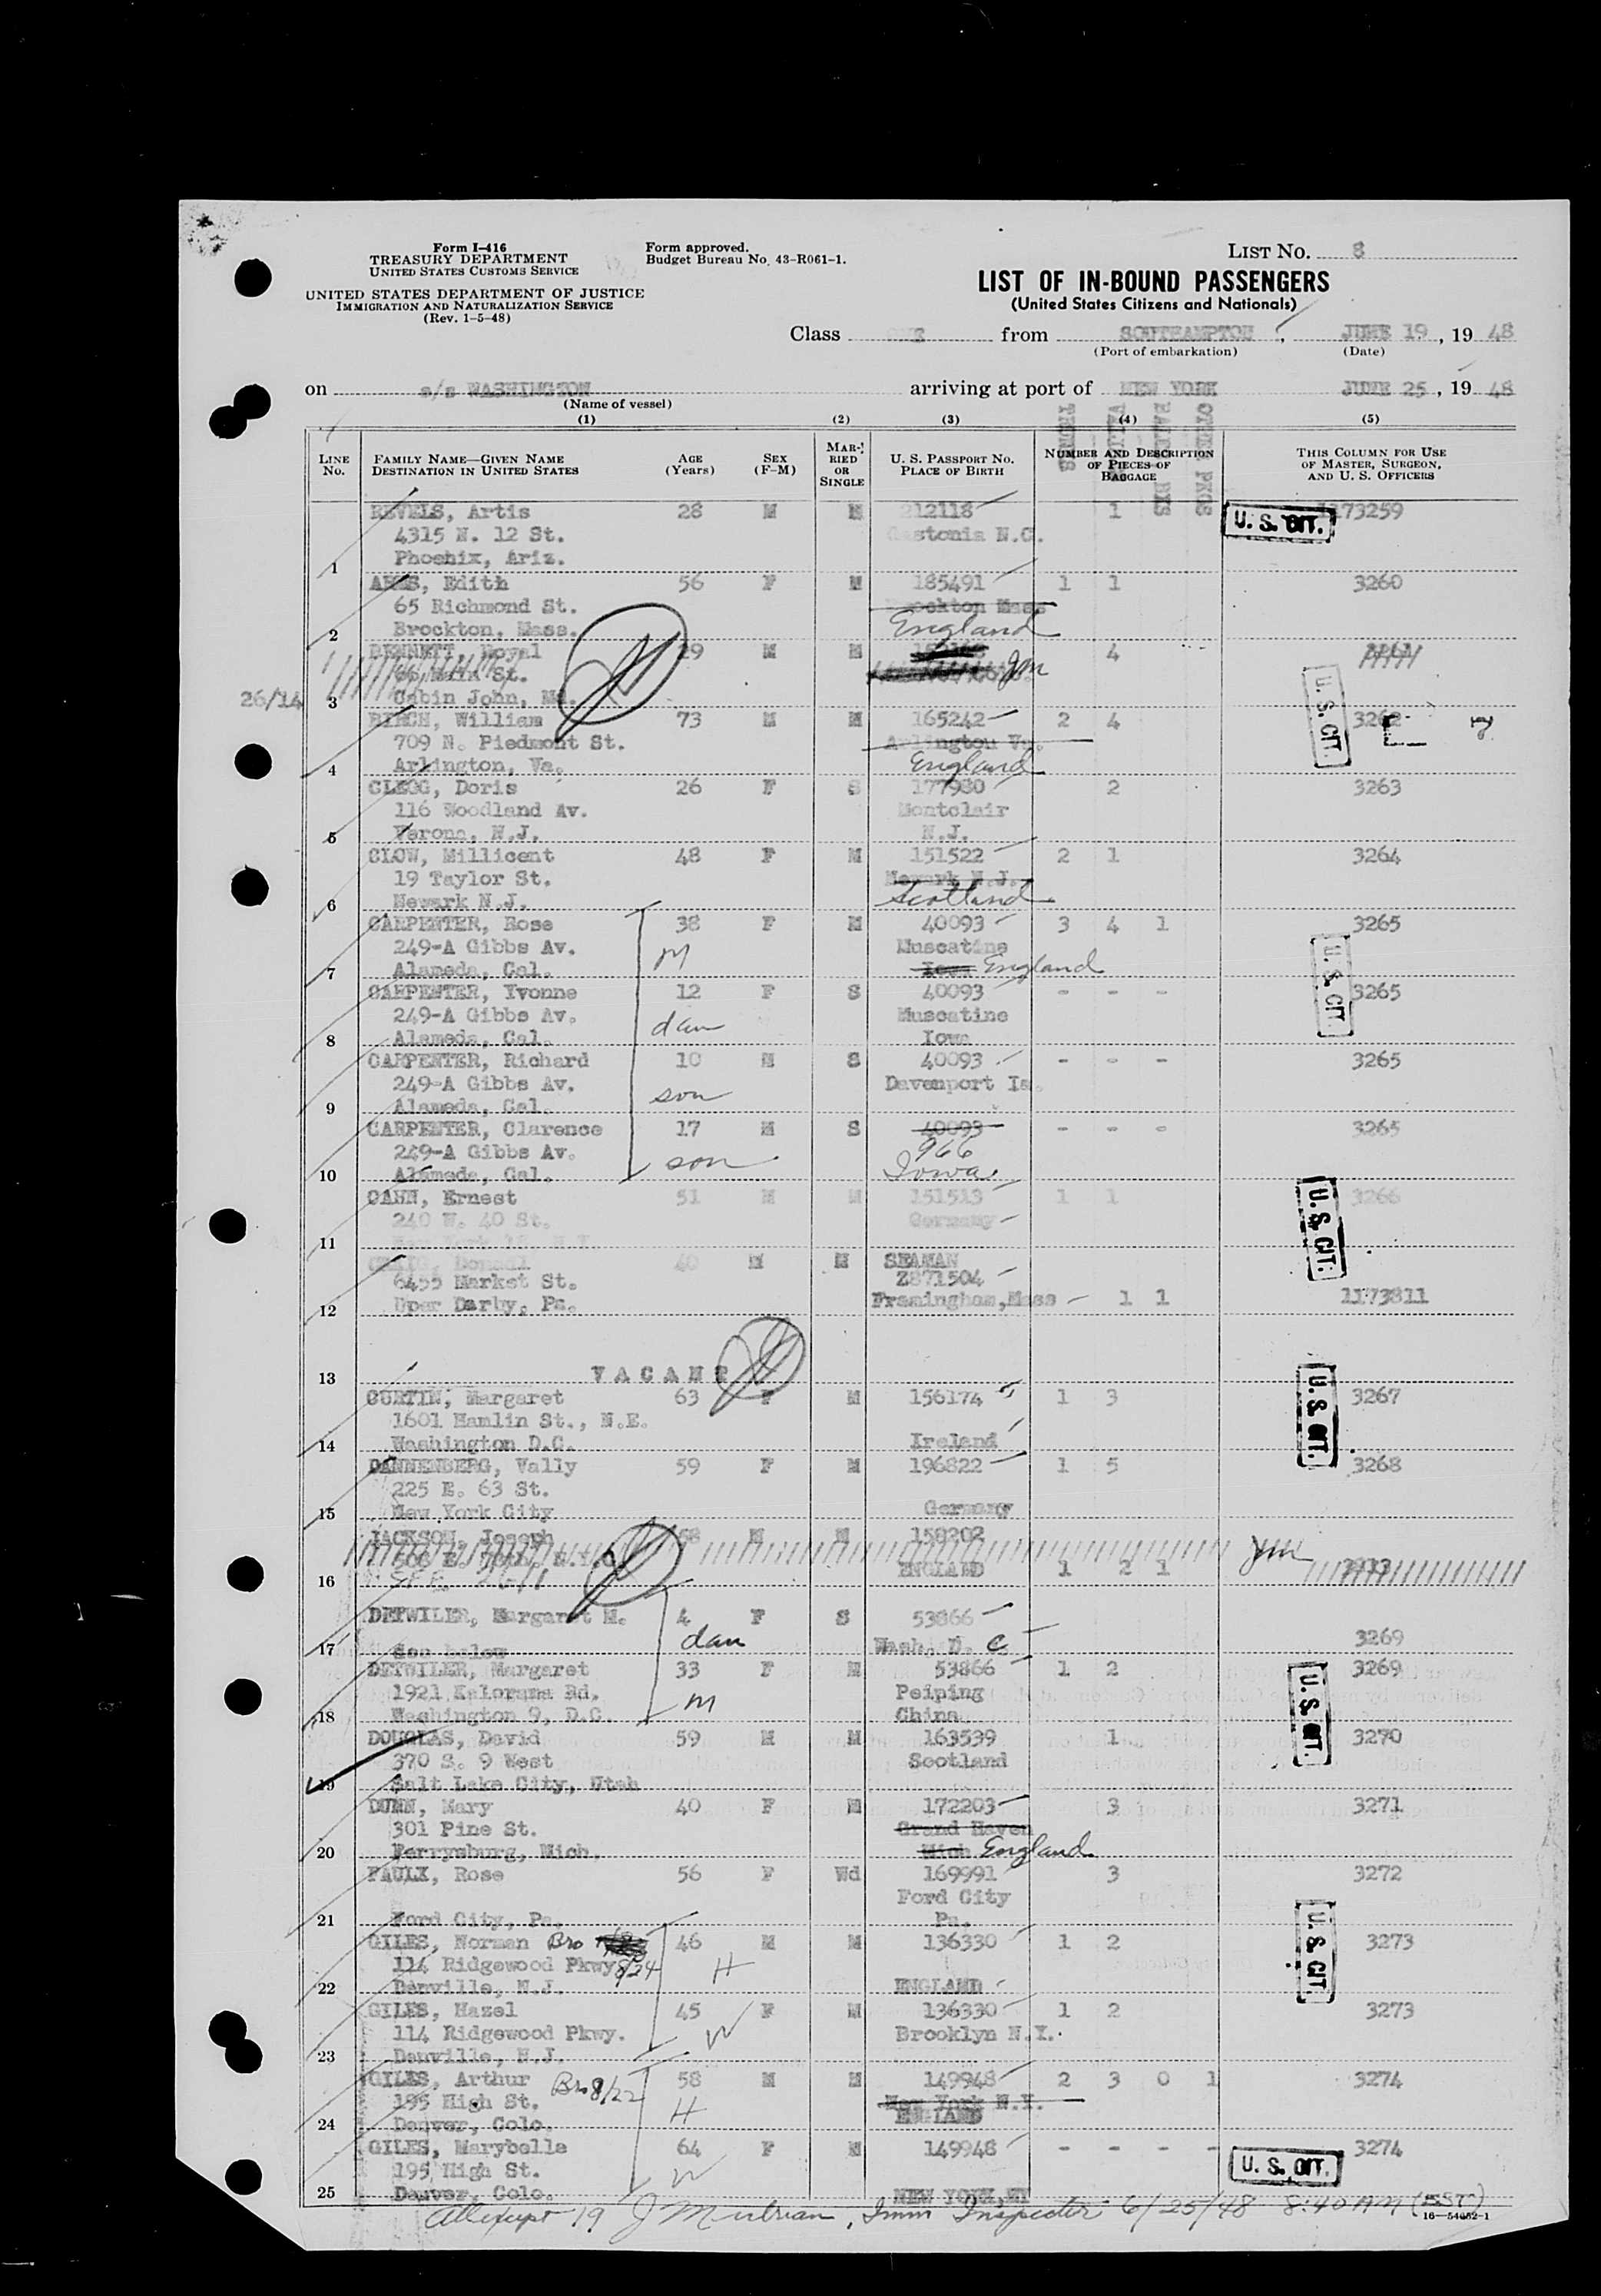 Form I-416
TREASURY DEPARTMENT
UNITED STATES CUSTOMS SERVICE
UNITED STATES DEPARTMENT OF JUSTICE
IMMIGRATION AND NATURALIZATION SERVICE
(Rev. 1-5-48)
Form approved.
Budget Bureau No. 43-R061-1.
LIST No. 8
LIST OF IN-BOUND PASSENGERS
(United States Citizens and Nationals)
Class ONE from SOUTHAMPTON, JUNE 19, 19 48
(Port of embarkation) (Date)
on s/s WASHINGTON arriving at port of NEW YORK JUNE 25, 19 48
(Name of vessel)
(1) (2) (3) (4) (5)
LINE No.
FAMILY NAME—GIVEN NAME
DESTINATION IN UNITED STATES
AGE (Years)
SEX (F-M)
MARRIED OR SINGLE
U. S. PASSPORT NO.
PLACE OF BIRTH
NUMBER AND DESCRIPTION OF PIECES OF BAGGAGE
THIS COLUMN FOR USE OF MASTER, SURGEON, AND U. S. OFFICERS
REVELS, Artis 28 M M 212118 1 1173259
U. S. CIT.
4315 N. 12 St. Gastonia N.C.
1 Phoenix, Ariz.
Edith 56 F M 185491 1 1 3260
65 Richmond St. Brockton Mass
2 Brockton, Mass. England
BENNETT, Royal 29 M M 4
St.
26/14 3 Cabin John, Md.
U. S. CIT.
BIRCH, William 73 M M 165242 2 4 3262
709 N. Piedmont St. Arlington Va.
4 Arlington, Va. England
CLEGG, Doris 26 F S 177980 2 3263
116 Woodland Av. Montclair
5 Verona, N.J. N.J.
CLOW, Millicent 48 F M 151522 2 1 3264
19 Taylor St. Newark N.J.
6 Newark N.J. Scotland
CARPENTER, Rose 38 F M 40093 3 4 1 3265
249-A Gibbs Av. M Muscatine
7 Alameda, Cal. Iowa England
U. S. CIT.
CARPENTER, Yvonne 12 F S 40093 - - - 3265
249-A Gibbs Av. dau Muscatine
8 Alameda, Cal. Iowa
CARPENTER, Richard 10 M S 40093 - - - 3265
249-A Gibbs Av. Davenport Ia.
9 Alameda, Cal. son
CARPENTER, Clarence 17 M S 40093 - - - 3265
249-A Gibbs Av. 966
10 Alameda, Cal. son Iowa
CAHN, Ernest 51 M M 151513 1 1 3266
U. S. CIT.
240 W. 40 St. Germany
11 New York 18, N.Y.
CRAIG, Donald 40 M M SEAMAN
6455 Market St. Z871504
12 Uper Darby, Pa. Framingham, Mass 1 1 1173811
13 VACANT
CURTIN, Margaret 63 F M 156174 1 3 3267
U. S. CIT.
1601 Hamlin St., N.E.
14 Washington D.C. Ireland
DANNENBERG, Vally 59 F M 196822 1 5 3268
225 E. 63 St.
15 New York City Germany
JACKSON, Joseph 68 M M 158202
16 ENGLAND 1 2 1
DETWILER, Margaret M. 4 F S 53866
dau
17 See below Wash. D. C 3269
DETWILER, Margaret 33 F M 53866 1 2 3269
U. S. CIT.
1921 Kalorama Rd. M Peiping
18 Washington 9, D.C. China
DOUGLAS, David 59 M M 163539 1 3270
370 S. 9 West Scotland
19 Salt Lake City, Utah
DUNN, Mary 40 F M 172203 3 3271
301 Pine St. Grand Haven
20 Ferrysburg, Mich. Mich England
FAULK, Rose 56 F Wd 169991 3 3272
Ford City
21 Ford City, Pa. Pa.
U. S. CIT.
GILES, Norman Bro 46 M M 136330 1 2 3273
114 Ridgewood Pkwy 8/24 H
22 Denville, N.J. ENGLAND
GILES, Hazel 45 F M 136330 1 2 3273
114 Ridgewood Pkwy. W Brooklyn N.Y.
23 Denville, N.J.
GILES, Arthur Bro 8/22 58 M M 149948 2 3 0 1 3274
195 High St. H New York N.Y.
24 Denver, Colo. ENGLAND
GILES, Marybelle 64 F M 149948 - - - - 3274
195 High St. W
U. S. CIT.
25 Denver, Colo. NEW YORK, NY
All except 19 Imm Inspector 6/25/48 8:40 AM (EST)
16—54652-1